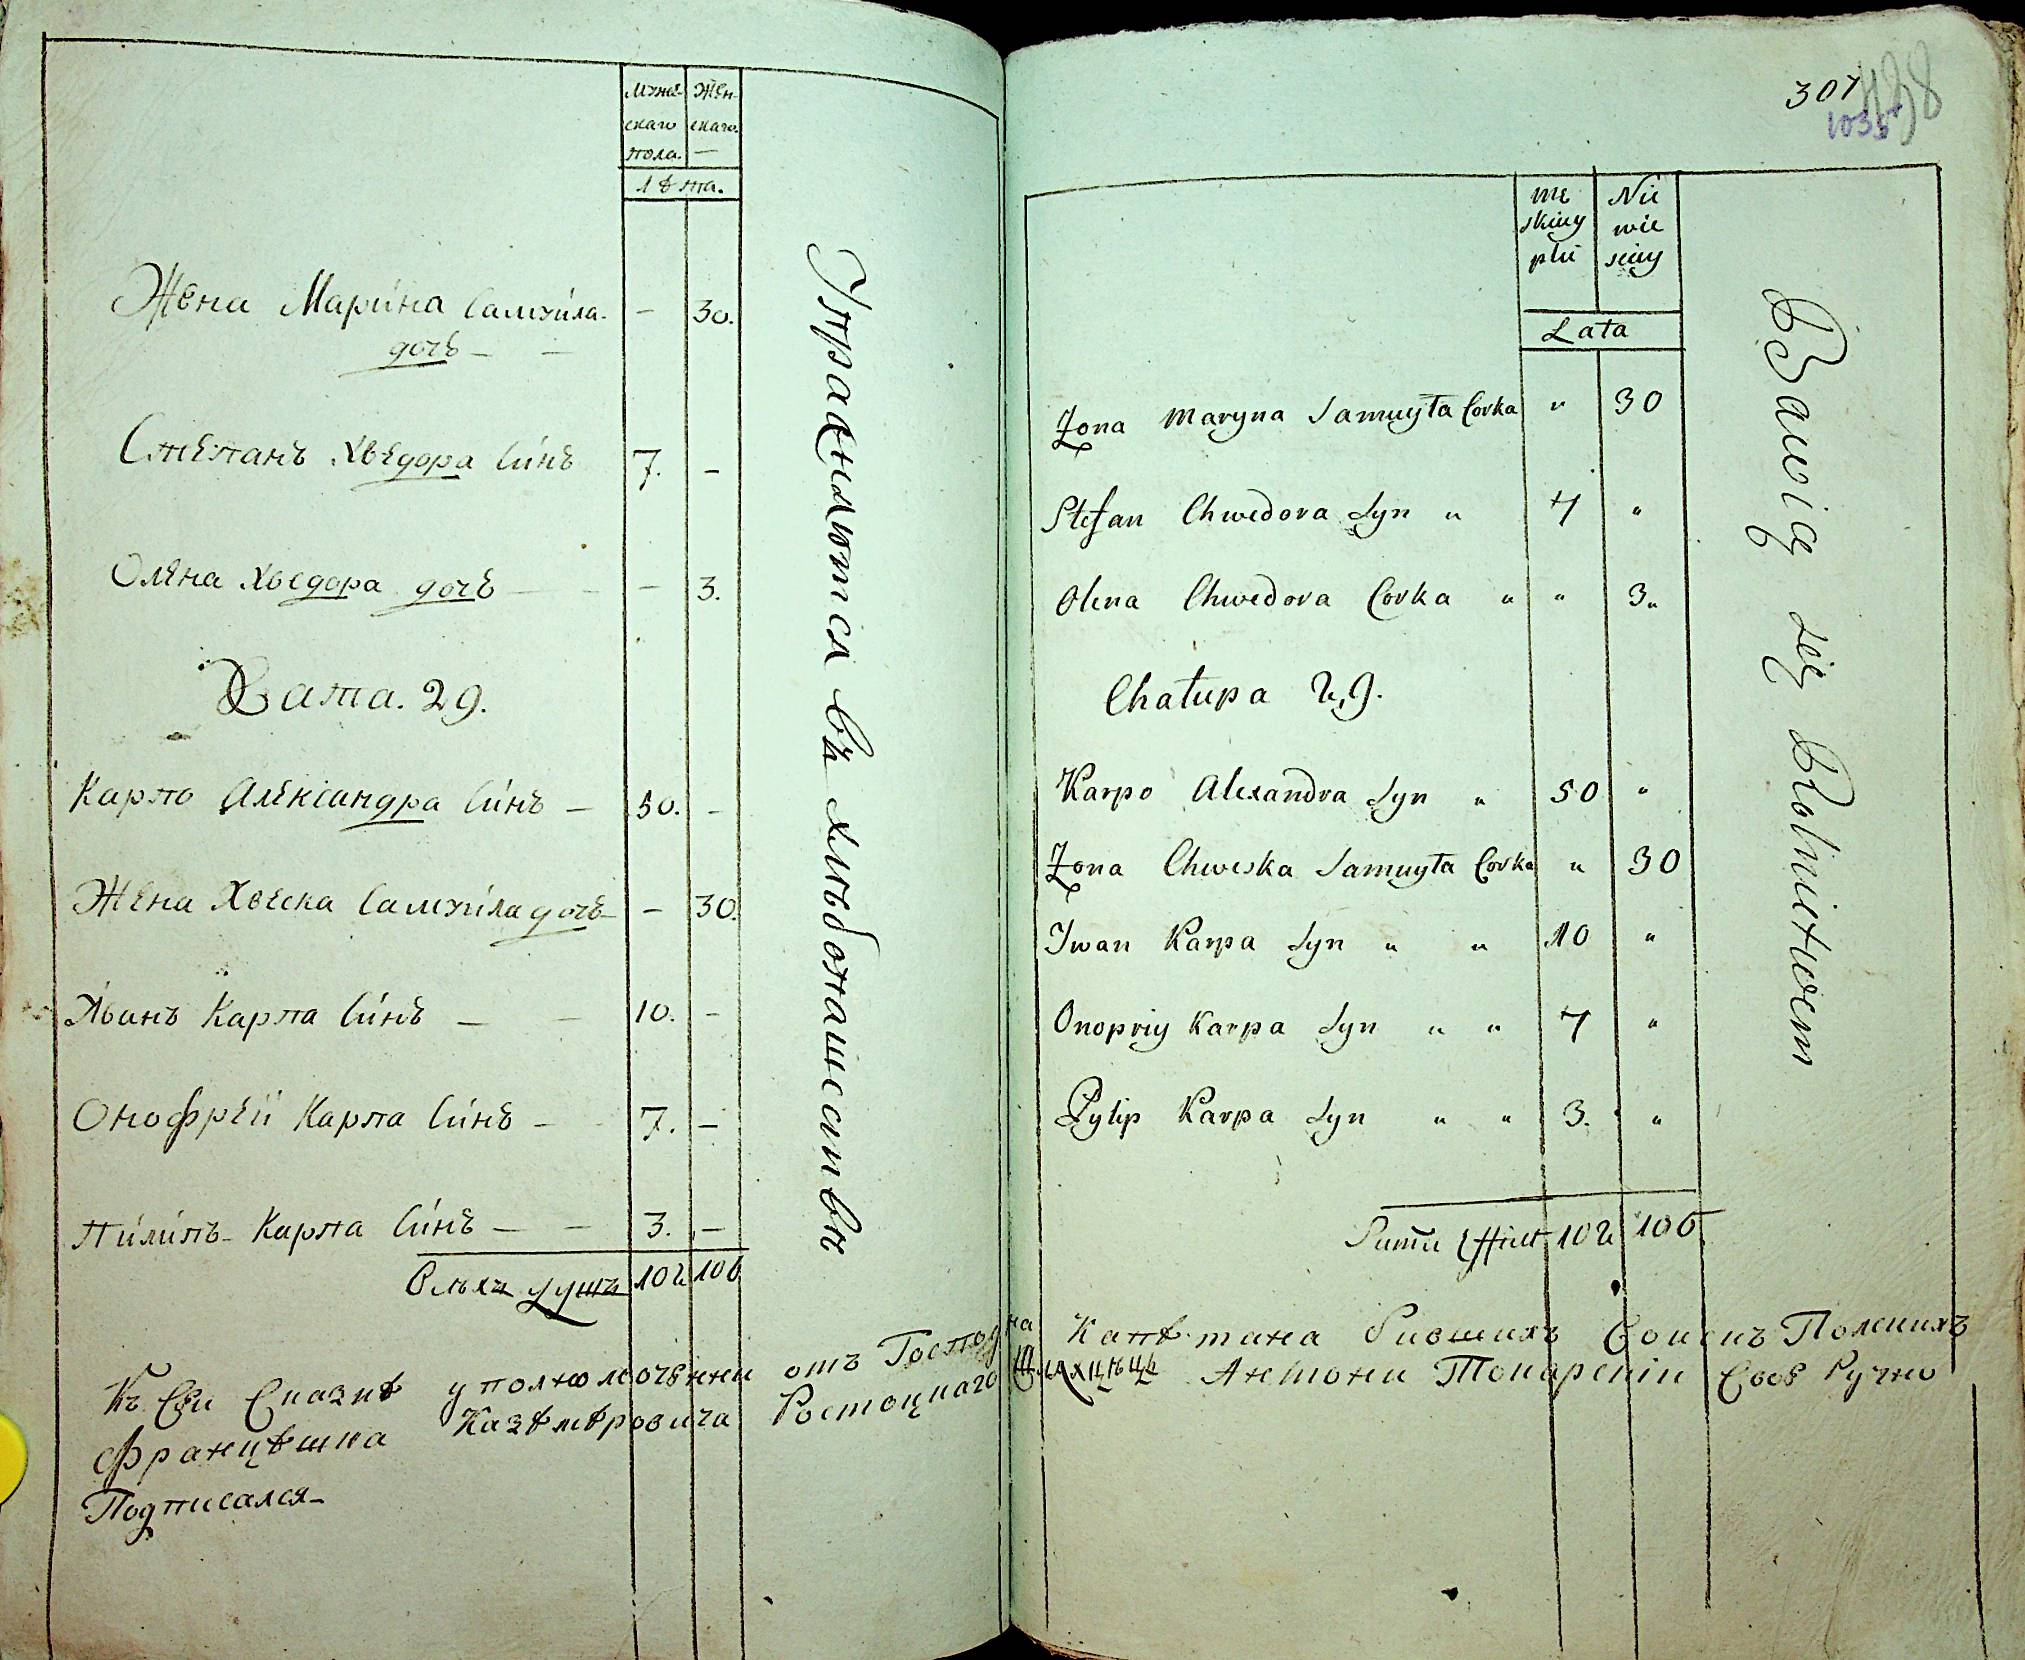 Мужескаго пола. Женскаго.
лѣта.
Жена Мари́на Самуи́ла
дочь — — 30.
Степанъ Хведора Си́нъ 7. —
Олена Хведора дочь — 3.
Хата. 29.
Карпо Александра Си́нъ — 50. —
Жена Хвеска Самуи́ла дочь — 30.
Иванъ Карпа Си́нъ — 10. —
Онофрей Карпа Си́нъ — 7. —
Пили́пъ Карпа Си́нъ — 3. —
Всѣхъ душъ 102 106
Упражняются въ хлѣбопашествѣ
307
1035
438
Męskiey płci Niewieściey
Lata
Żona Maryna Samuyła Corka " 30
Stefan Chwedora Syn " 7 "
Olena Chwedora Corka " " 3"
Chałupa 29.
Karpo Alexandra Syn " 50 "
Żona Chweska Samuyła Corka " 30
Iwan Karpa Syn " " 10 "
Onopriy Karpa Syn " " 7 "
Pylip Karpa Syn " " 3. "
Summa 102 106
Bawią się Rolnictwem
Къ Сеи Сказкѣ уполномоченни отъ Господина Капѣтана Бившихъ Воискъ Полскихъ
Францѣшка Казѣмѣровича Ростоцкаго Шляхциць Антони Токарскіи Своеручно
Подписался